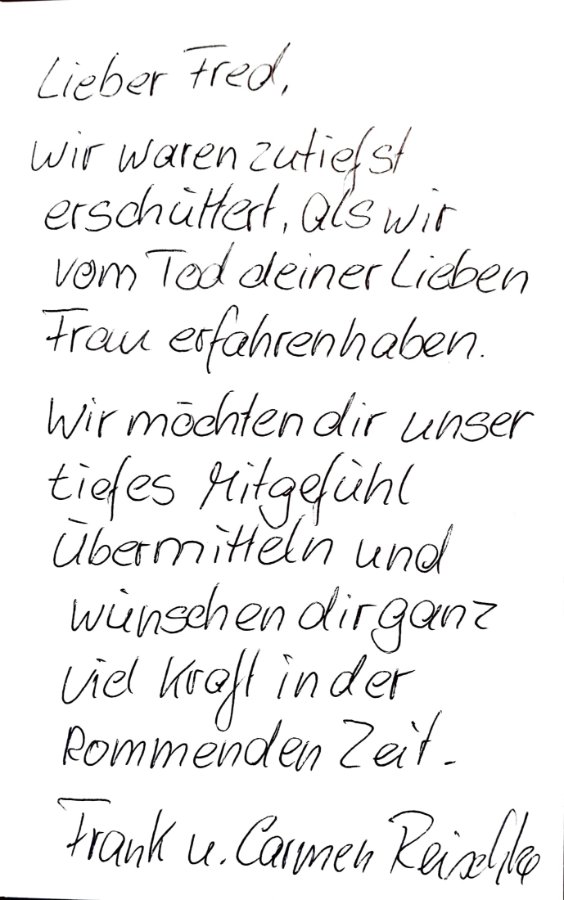 Lieber Fred,
wir waren zutiefst
erschüttert, als wir
vom Tod deiner Lieben
Frau erfahren haben.
Wir möchten dir unser
tiefes Mitgefühl
übermitteln und
wünschen dir ganz
viel Kraft in der
kommenden Zeit.
Frank u. Carmen